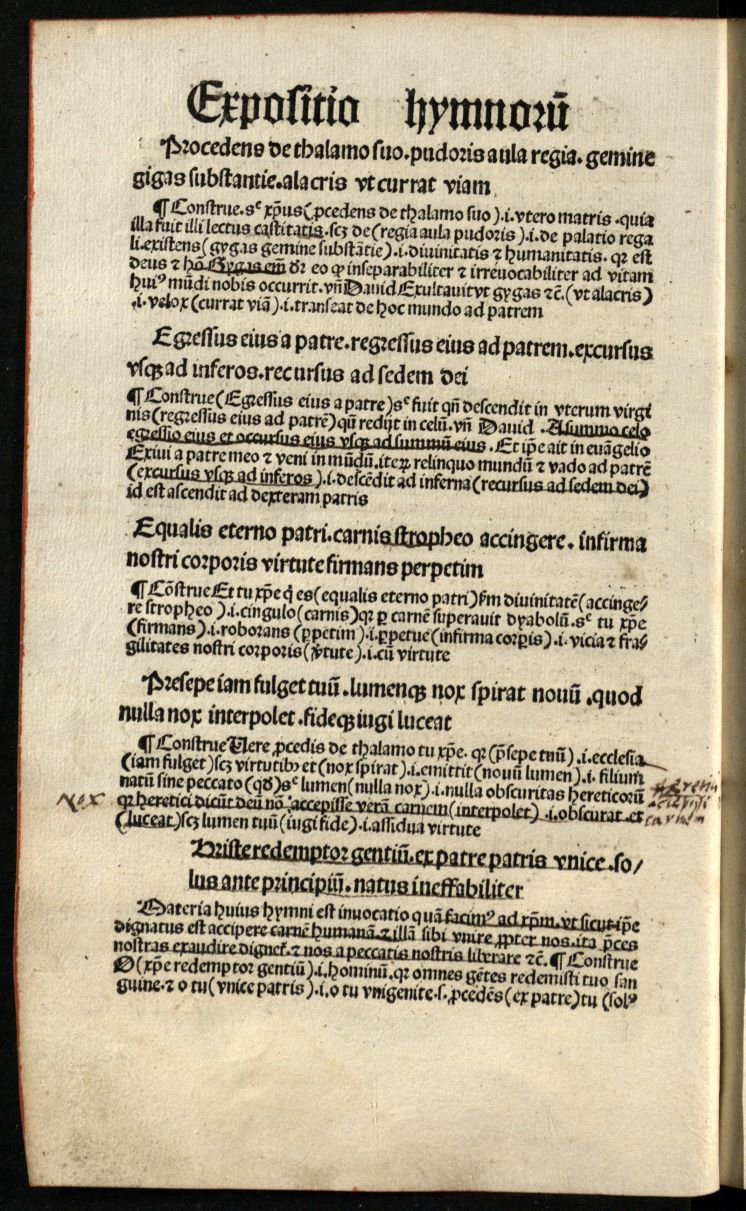 Expositio hymnorū
Procedens de thalamo suo. pudoris aula regia. gemine
gigas substantie. alacris vt currat viam
¶ Construe. sᶜ xp̄us (ꝓcedens de thalamo suo). i. vtero matris. quia
illa fuit illi lectus castitatis. scꝫ de (regia aula pudoris). i. de palatio rega
li. existens (gygas gemine substātie). i. diuinitatis ⁊ humanitatis. qꝛ est
deus ⁊ hō. Gygas em̄ dr̄ eo ꝙ inseparabiliter ⁊ irreuocabiliter ad vitam
huiꝰ mūdi nobis occurrit. vn̄ Dauid Exultauit vt gygas ⁊c̄. (vt alacris)
. i. velox (currat viā). i. transeat de hoc mundo ad patrem
Egressus eius a patre. regressus eius ad patrem. excursus
vsqꝫ ad inferos. recursus ad sedem dei
¶ Construe (Egressus eius a patre) sᶜ fuit qn̄ descendit in vterum virgi
nis (regressus eius ad patrē) qn̄ redijt in celū. vn̄ Dauid. A summo celo
egressio eius et occursus eius vsqꝫ ad summū eius. Et ip̄e ait in euāgelio
Exiui a patre meo ⁊ veni in mūdū. iteꝝ relinquo mundū ⁊ vado ad patrē
(excursus vsqꝫ ad inferos). i. descēdit ad inferna (recursus ad sedem dei)
id est ascendit ad dexteram patris
Equalis eterno patri. carnis stropheo accingere. infirma
nostri corporis virtute firmans perpetim
¶ Cōstrue Et tu xp̄e q̇ es (equalis eterno patri) ẜm diuinitatē (accinge⸗
re stropheo). i. cingulo (carnis) qꝛ ꝑ carnē superauit dyabolū. sᶜ tu xp̄e
(firmans). i. roborans (ꝑpetim). i. ꝑpetue (infirma corꝑis). i. vicia ⁊ fra⸗
gilitates nostri corporis (v̓tute). i. cū virtute
Presepe iam fulget tuū. lumenqꝫ nox spirat nouū. quod
nulla nox interpolet. fideqꝫ iugi luceat
¶ Construe Vere ꝓcedis de thalamo tu xp̄e. qꝛ (p̄sepe tuū). i. ecclesia
(iam fulget) scꝫ virtutibꝰ et (nox spirat). i. emittit (nouū lumen). i. filium
natū sine peccato (qd̄) sᶜ lumen (nulla nox). i. nulla obscuritas hereticorū
qꝛ heretici dicūt deū nō accepisse verā carnem (interpolet). i. obscurat et
(luceat) scꝫ lumen tuū (iugi fide). i. assidua virtute
Nox
carnem
Christe redemptor gentiū. ex patre patris vnice. so/
lus ante principiū. natus ineffabiliter
Materia huius hymni est inuocatio quā facimꝰ ad xp̄m. vt sicut ip̄e
dignatus est accipere carnē humanā ⁊ illā sibi vnire ꝓpter nos. ita p̄ces
nostras exaudire dignet̃. ⁊ nos a peccatis nostris liberare ⁊c̄. ¶ Construe
O (xp̄e redemptor gentiū). i. hominū. qꝛ omnes gētes redemisti tuo san
guine. ⁊ o tu (vnice patris). i. o tu vnigenite. s. ꝓcedēs (ex patre) tu (solꝰ